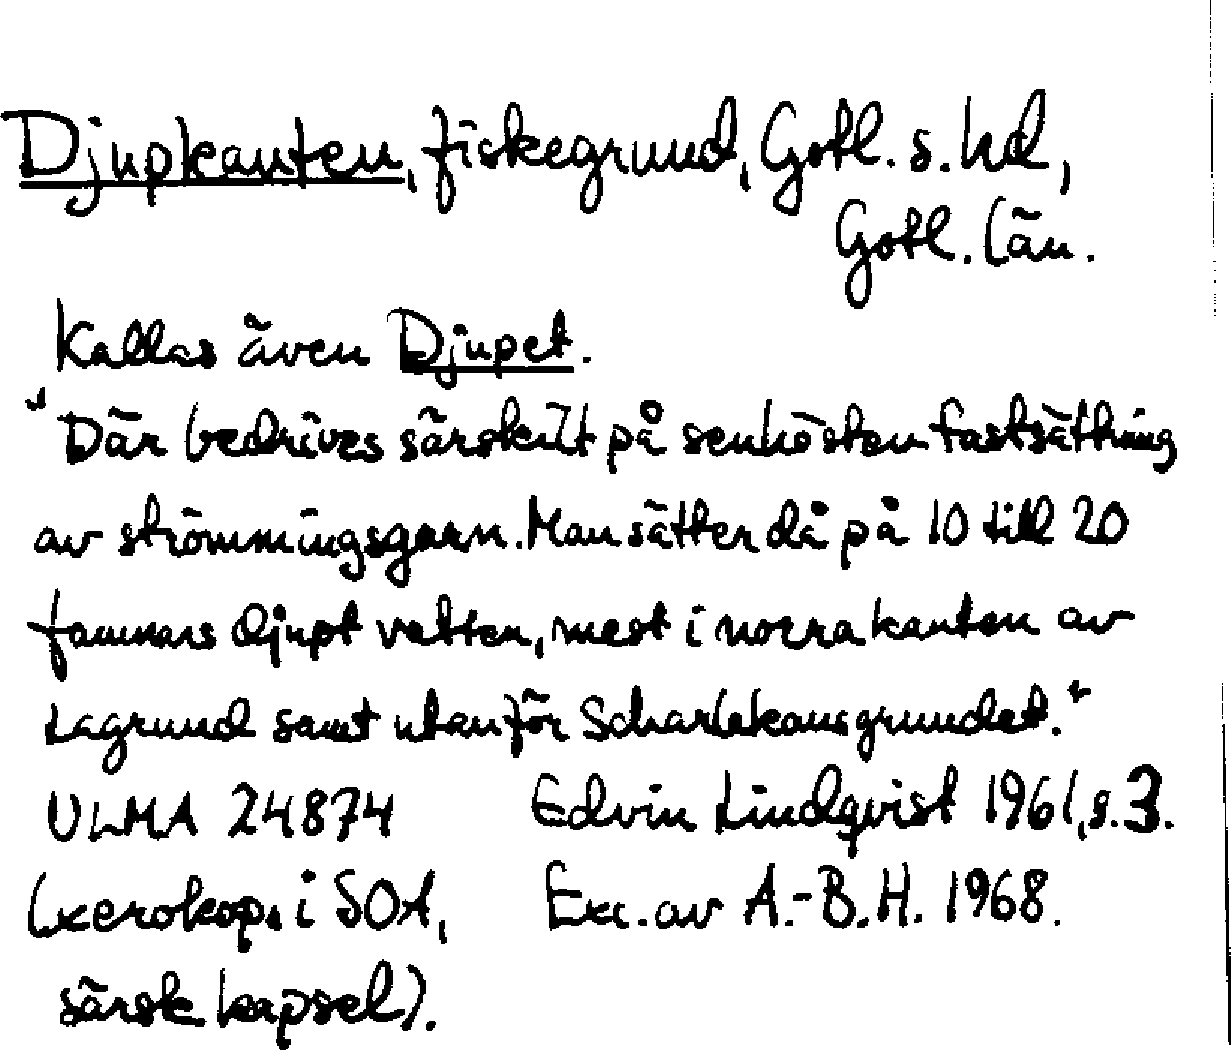 Djupkanten, fiskegrund, Gotl. s. hd,
Gotl. län.
Kallas även Djupet.
"Där bedrives särskilt på senhösten fastsättning
av strömmingsgarn. Man sätter då på 10 till 20
famnars djupt vatten, mest i norra kanten av
Lagrund samt utanför grundet."
ULMA 24874 Edvin Lindqvist 1961, s. 3.
(xerokop. i SOA, Exc. av A.-B. H. 1968.
särsk. kapsel).